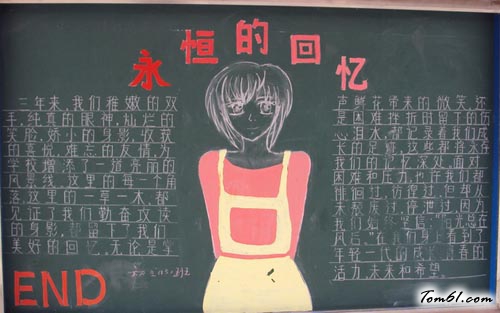 永恒的回忆
三年来,我们稚嫩的双
手,纯真的眼神,灿烂的
笑脸,娇小的身影,收获
的喜悦,难忘的友情,为
学校增添了一道亮丽的
风景线。这里的每一个角
落,这里的一草一木,都
见证了我们勤奋攻读
的身影,都留下了我们
美好的回忆,无论是掌
声鲜花带来的微笑,还
是困难挫折留下的伤
心泪水,都记录着我们成
长的足迹,这些都将永存
我们的记忆深处,面对
困难和压力,也许我们都
徘徊过,彷徨过,但却从
未颓废过,停泄过,因为
我们始终坚信"阳光总在
风雨
年轻一代的
活力,未来和希望
END
Tom61.com